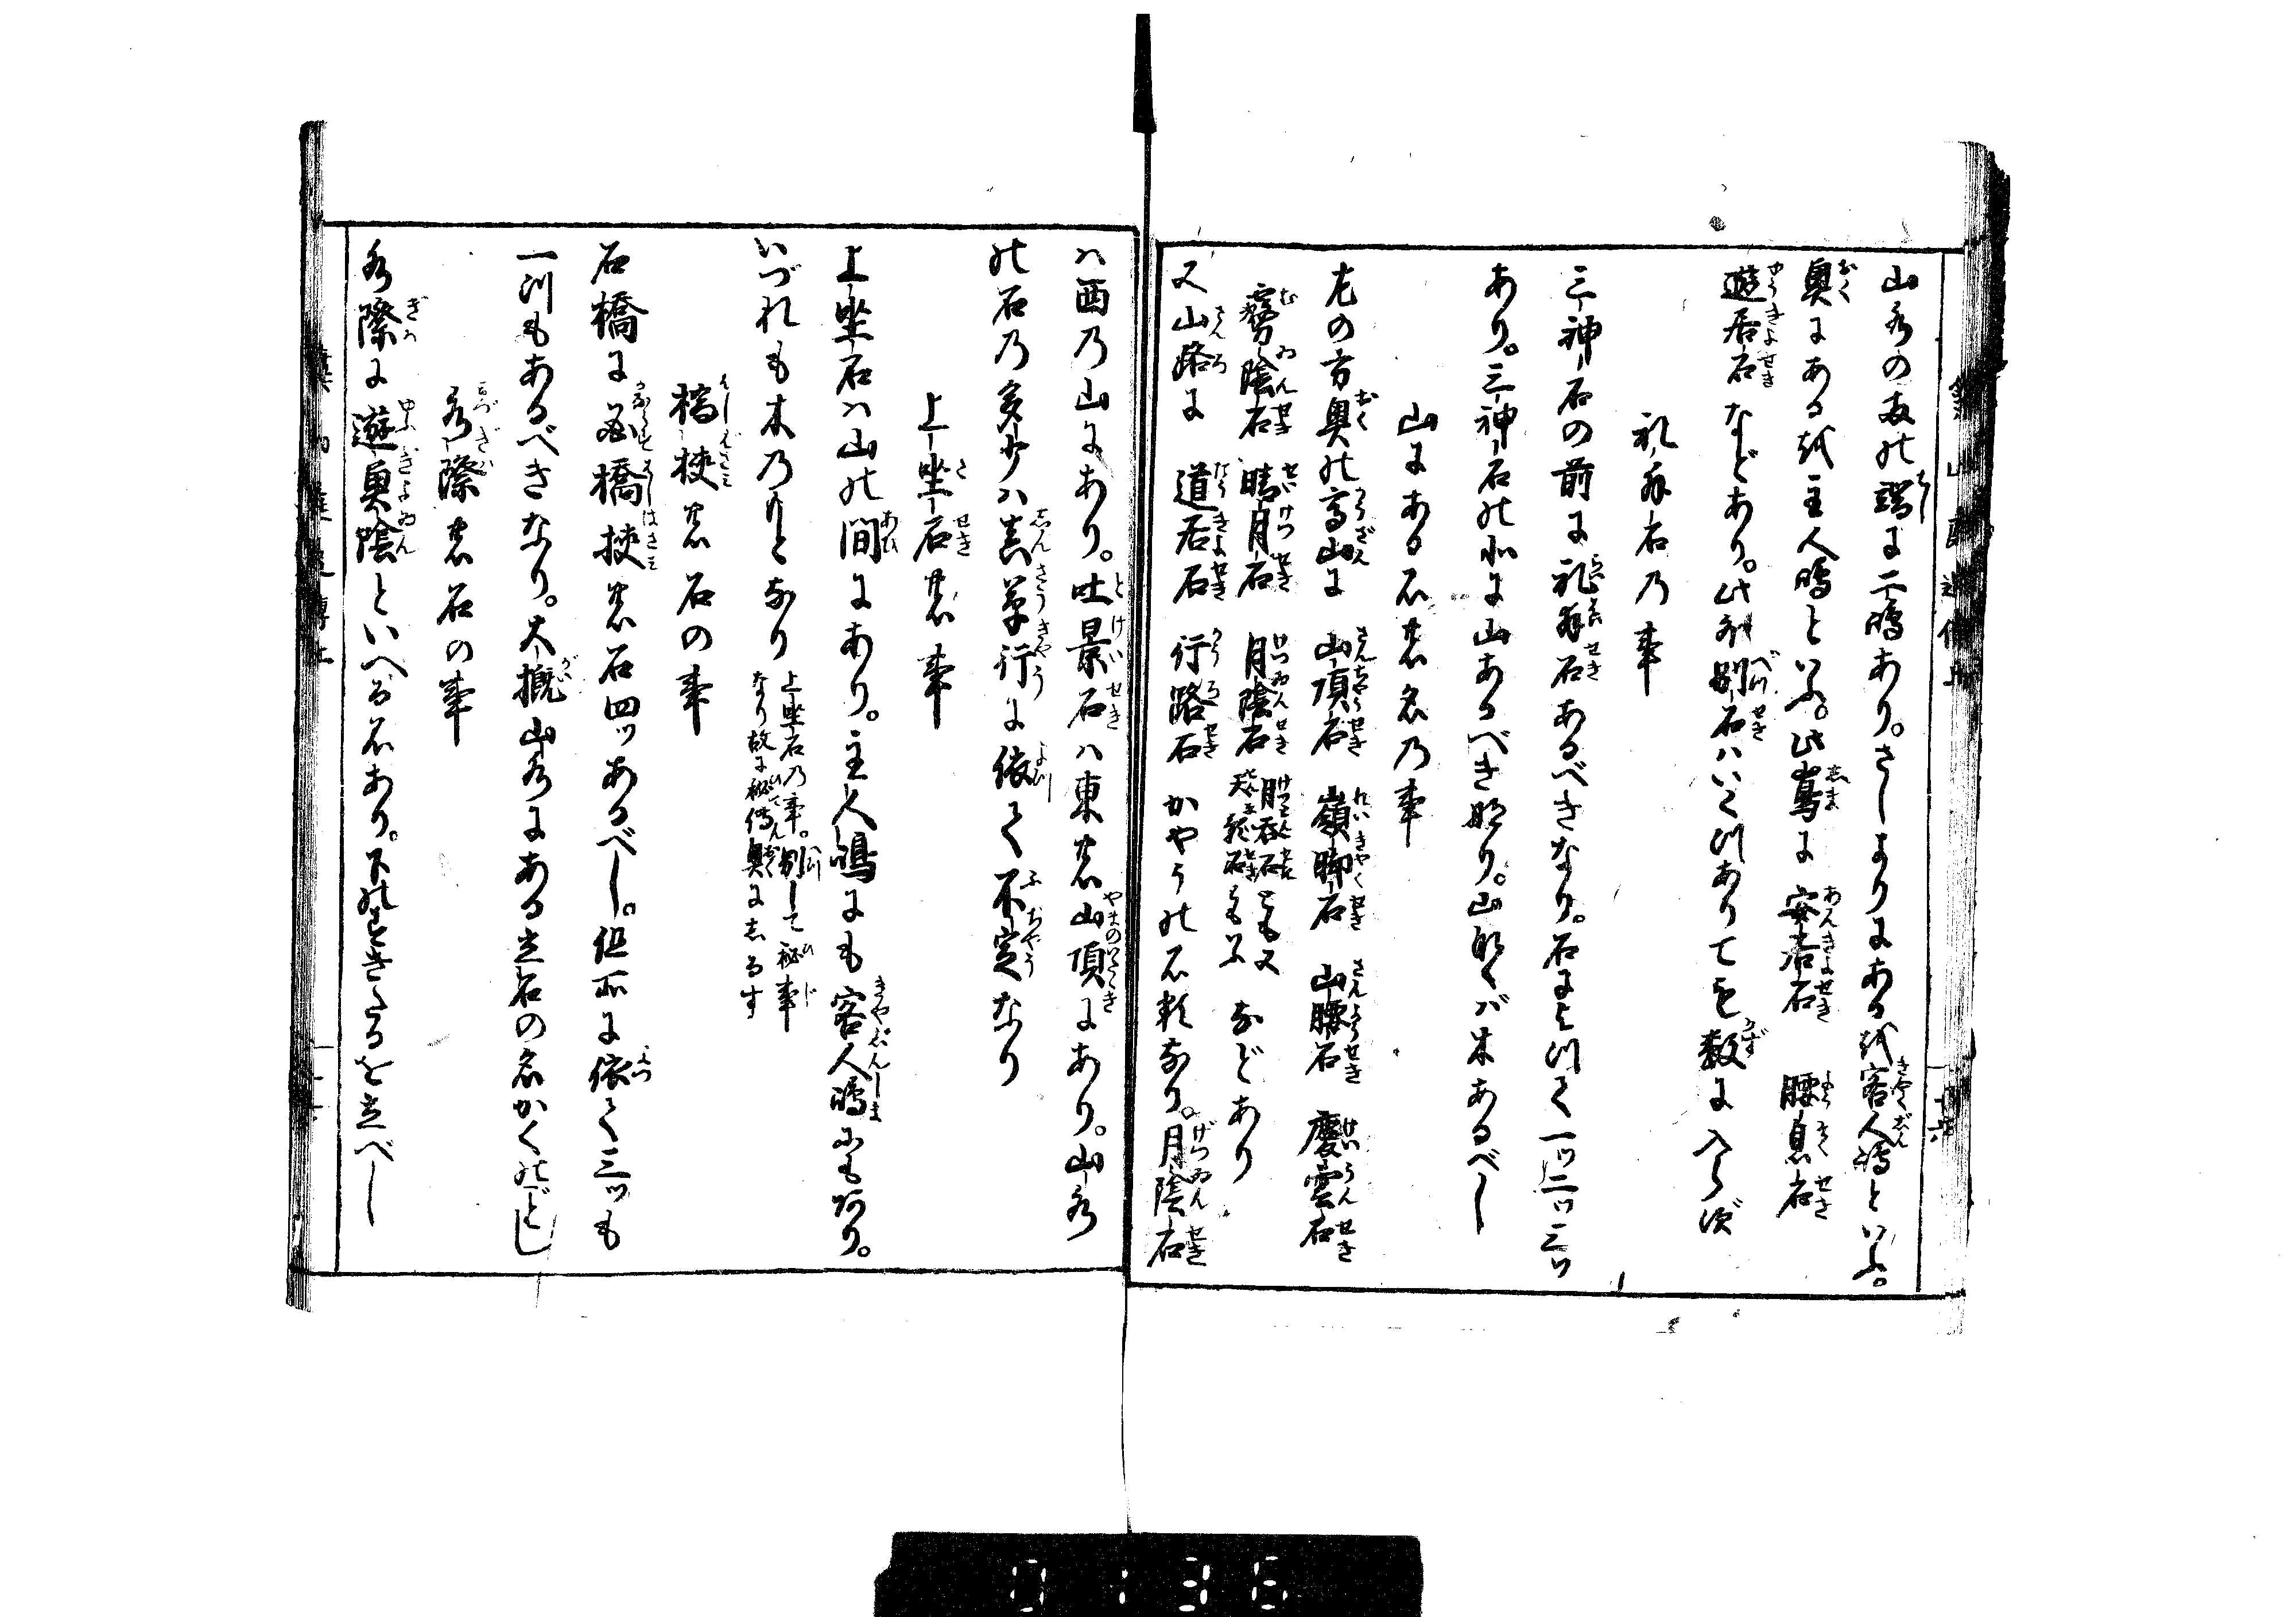 山水の両の端に二嶋あり。さしよりにある越客人嶋といふ。
奥にある越主人嶋といふ。此嶌に 安居石 腰息石
遊居石などあり。此外別石ハいくつありても数に入らず
礼拜石乃事
三神石の前に礼拜石あるべきなり。石によりて一ツ二ツ三ツ
あり。三神石の北に山あるべき也り。山なくバ木あるべし
山にある石の名乃事
左の方奥の高山に 山頂石 嶺脚石 山腰石 慶雲石
霧陰石 晴月石 月陰石 などあり
又山路に 道居石 行路石 かやうの石類なり。月陰石
ハ西乃山にあり。吐景石ハ東の山頂にあり。山水
の石乃多少ハ真草行に依て不定なり
上坐石の事
上坐石ハ山の間にあり。主人嶋にも客人嶋にもあり。
いづれも木乃もとなり 上坐石乃事。別して秘事
なり故に秘傳奥にしるす
橋挾の石の事
石橋に必橋挾の石四ツあるべし。但所に依て三ツも
一つもあるべきなり。大概山水にある立石の名かくのごとし
水際の石の事
水際に遊魚陰といへる石あり。下のすきたるを立べし
0136